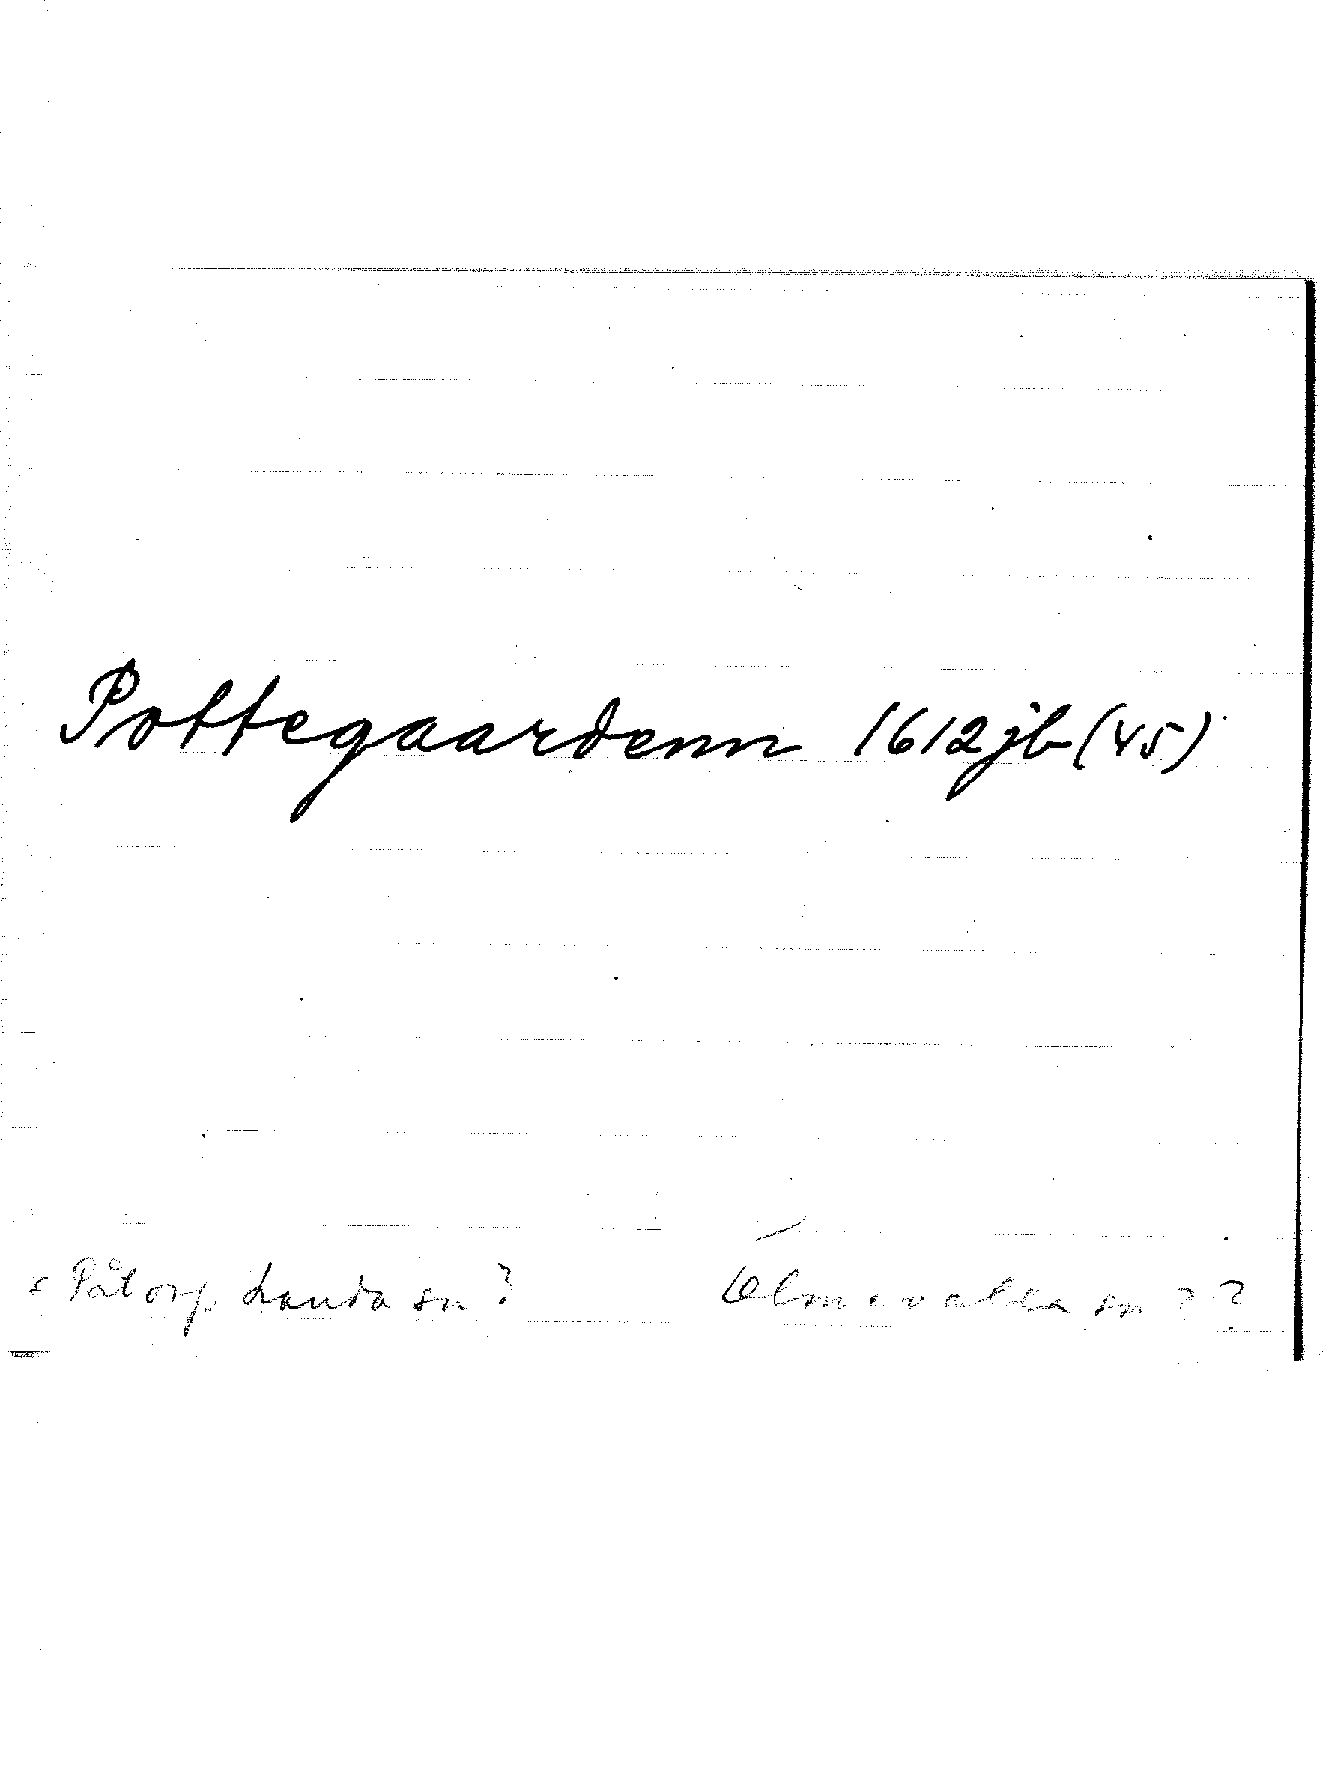 Pottegaardenn 1612 jb (45)
s Påtorp Landa sn? Ölmevalla sn ??